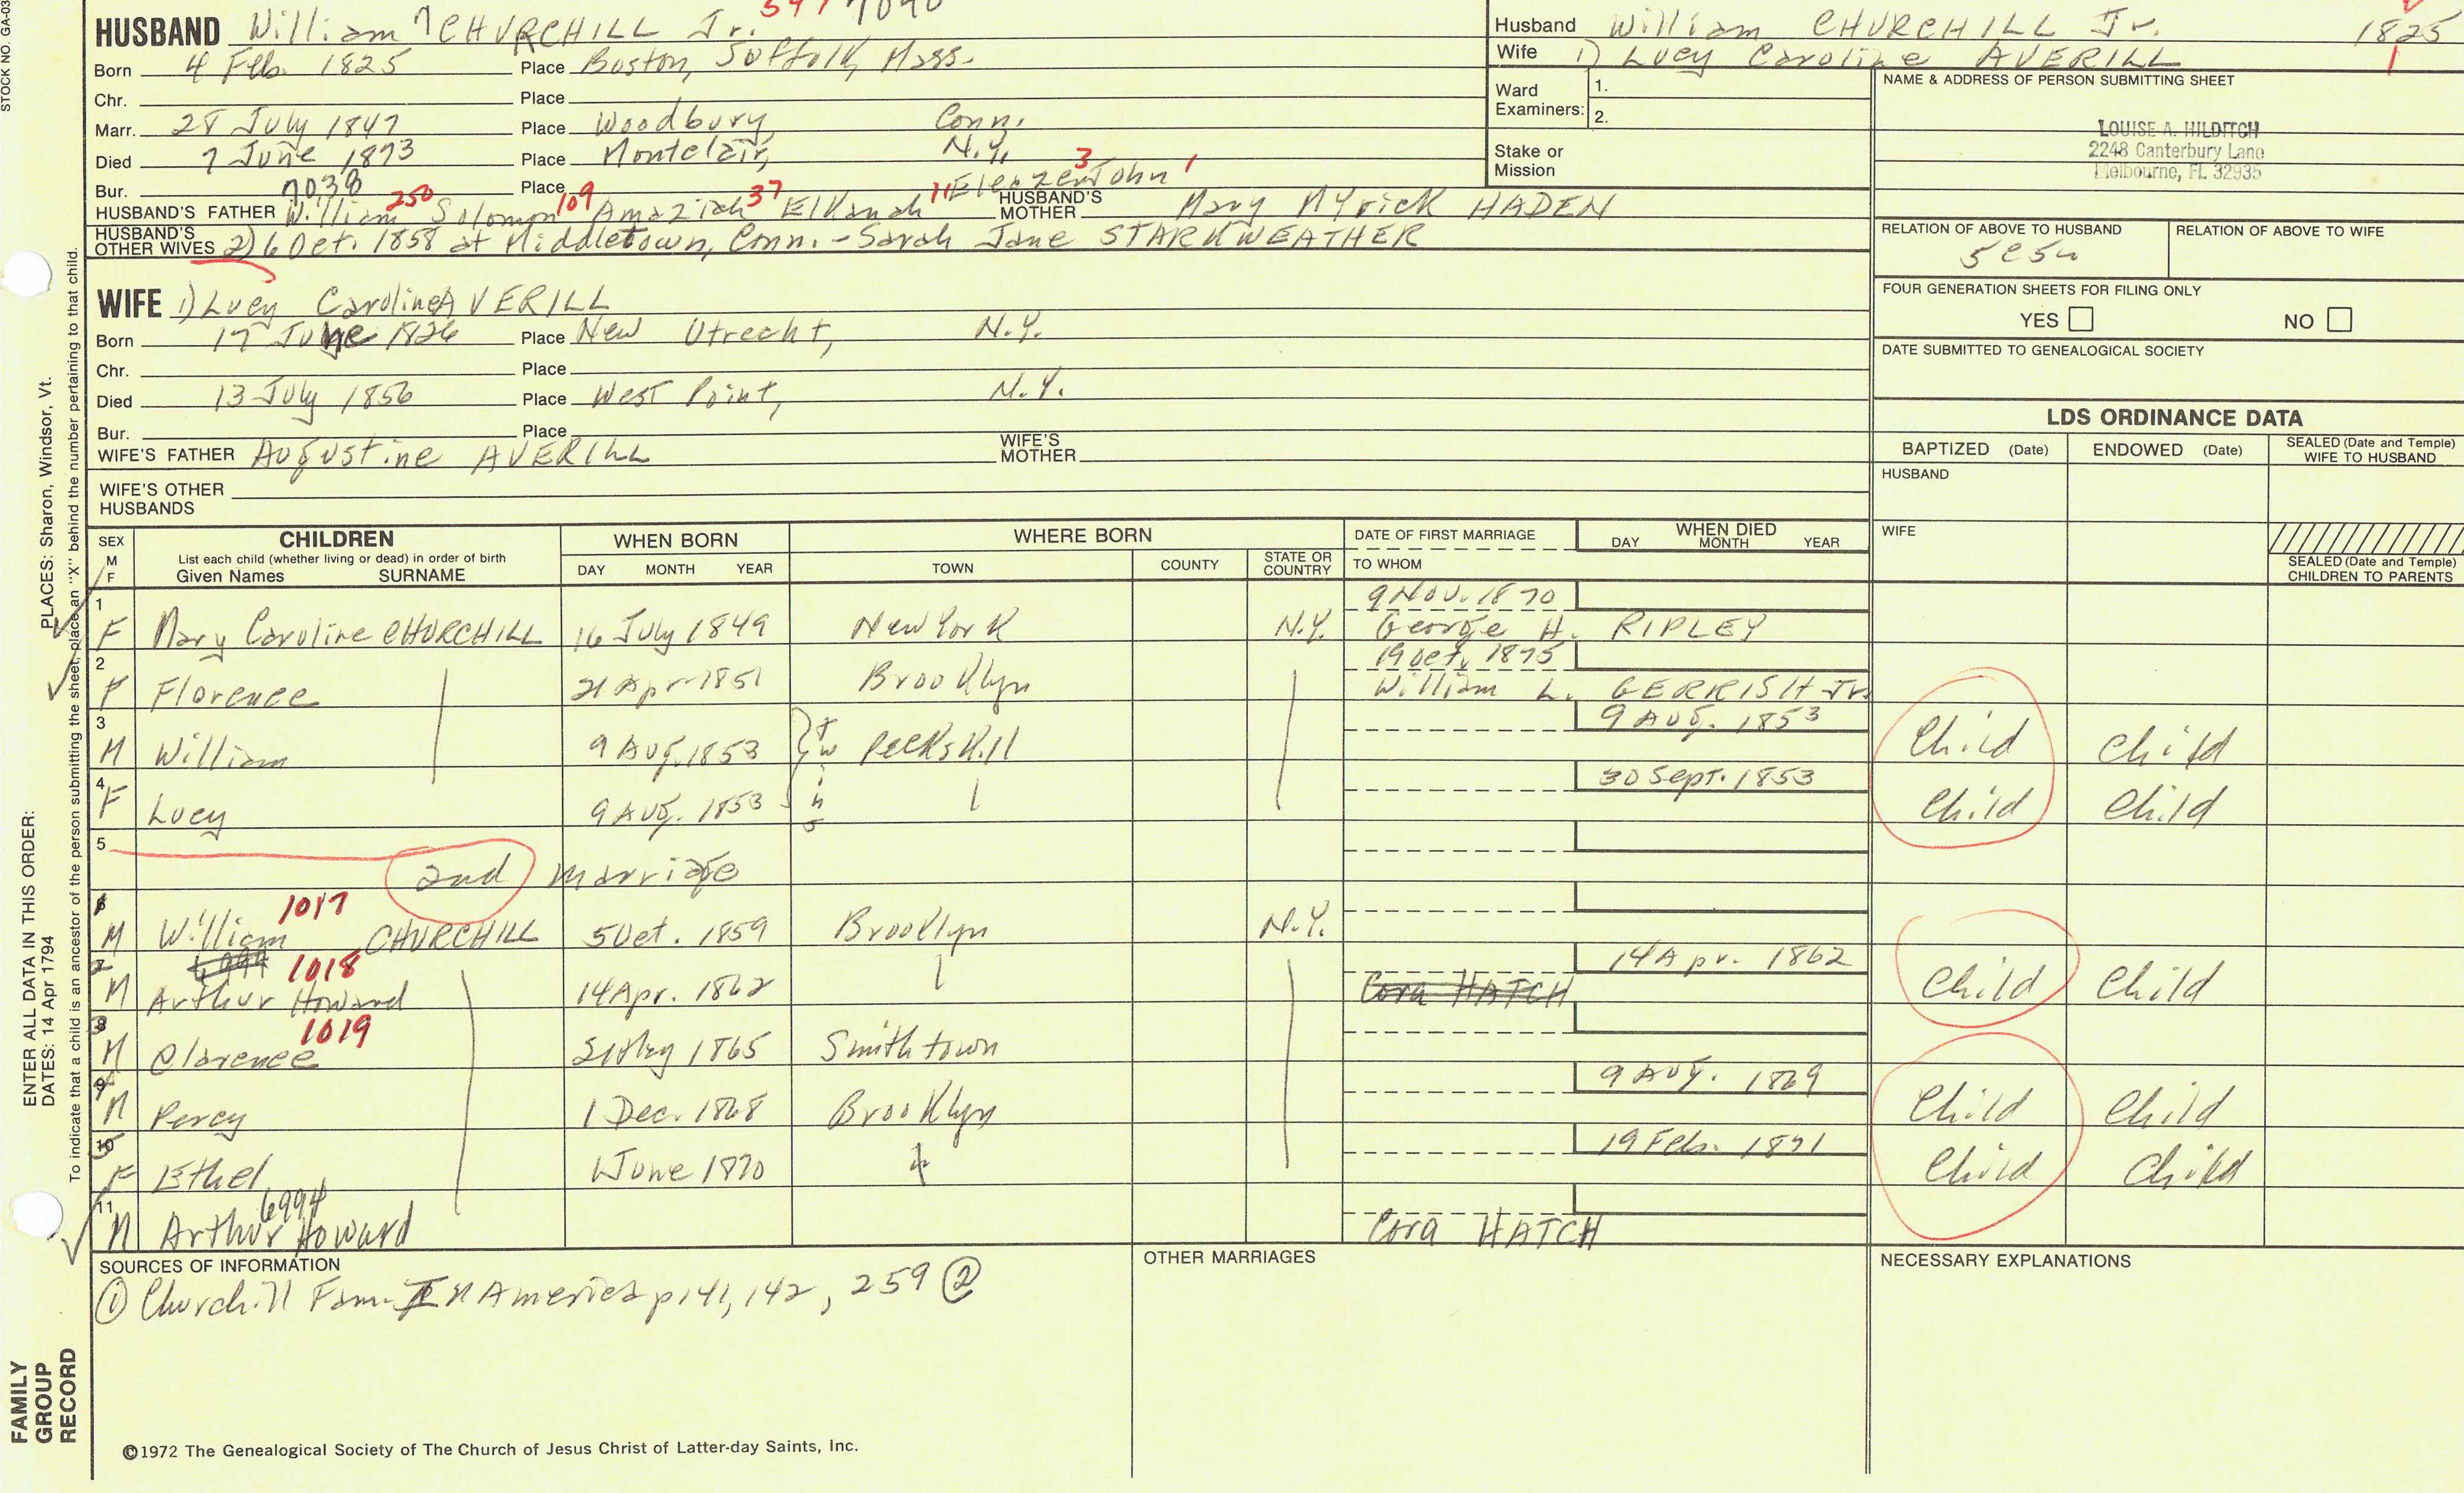 STOCK NO. GA-03
HUSBAND William 7 CHURCHILL Jr.
Born 4 Feb. 1825 Place Boston, Suffolk, Mass.
Chr. Place
Marr. 28 July 1847 Place Woodbury, Conn.
Died 7 June 1873 Place Montclair, N.Y.
Bur. 7038 Place
HUSBAND'S FATHER William 250 Solomon 109 Amaziah 37 Elkanah 11 Eleazer 3 John 1 HUSBAND'S MOTHER Mary Myrick HADEN
HUSBAND'S OTHER WIVES 2) 6 Oct. 1858 at Middletown, Conn. - Sarah Jane STARKWEATHER
WIFE 1) Lucy Caroline AVERILL
Born 17 June 1826 Place New Utrecht, N.Y.
Chr. Place
Died 13 July 1856 Place West Point, N.Y.
Bur. Place
WIFE'S FATHER Augustine AVERILL WIFE'S MOTHER
WIFE'S OTHER HUSBANDS
Husband William CHURCHILL Jr. 1825
Wife 1) Lucy Caroline AVERILL 1
Ward Examiners: 1.
2.
Stake or Mission
NAME & ADDRESS OF PERSON SUBMITTING SHEET
LOUISE A. HILDITCH
2248 Canterbury Lane
Melbourne, FL 32935
RELATION OF ABOVE TO HUSBAND RELATION OF ABOVE TO WIFE
FOUR GENERATION SHEETS FOR FILING ONLY
YES NO
DATE SUBMITTED TO GENEALOGICAL SOCIETY
LDS ORDINANCE DATA
BAPTIZED (Date) ENDOWED (Date) SEALED (Date and Temple) WIFE TO HUSBAND
HUSBAND
WIFE
SEALED (Date and Temple) CHILDREN TO PARENTS
SEX M F CHILDREN WHEN BORN WHERE BORN DATE OF FIRST MARRIAGE WHEN DIED
List each child (whether living or dead) in order of birth
Given Names SURNAME DAY MONTH YEAR TOWN COUNTY STATE OR COUNTRY TO WHOM DAY MONTH YEAR
1 9 Nov. 1870
F Mary Caroline CHURCHILL 16 July 1849 New York N.Y. George H. RIPLEY
2 19 Oct. 1875
F Florence 21 Apr 1851 Brooklyn William L. GERRISH Jr.
3 9 Aug. 1853
M William 9 Aug. 1853 twins Peekskill Child Child
4 30 Sept. 1853
F Lucy 9 Aug. 1853 Child Child
5
2nd marriage
6 1017
M William CHURCHILL 5 Oct. 1859 Brooklyn N.Y.
7 1018 14 Apr. 1862
M Arthur Howard 14 Apr. 1862 Cora HATCH Child Child
8 1019
M Clarence 21 May 1865 Smithtown
9 9 Aug. 1869
M Percy 1 Dec. 1868 Brooklyn Child Child
10 19 Feb. 1871
F Ethel 1 June 1870 Child Child
11 6994
M Arthur Howard Cora HATCH
SOURCES OF INFORMATION OTHER MARRIAGES NECESSARY EXPLANATIONS
① Churchill Fam. In America p 141, 142, 259 ②
©1972 The Genealogical Society of The Church of Jesus Christ of Latter-day Saints, Inc.
ENTER ALL DATA IN THIS ORDER:
DATES: 14 Apr 1794 PLACES: Sharon, Windsor, Vt.
To indicate that a child is an ancestor of the person submitting the sheet, place an "X" behind the number pertaining to that child.
FAMILY
GROUP
RECORD